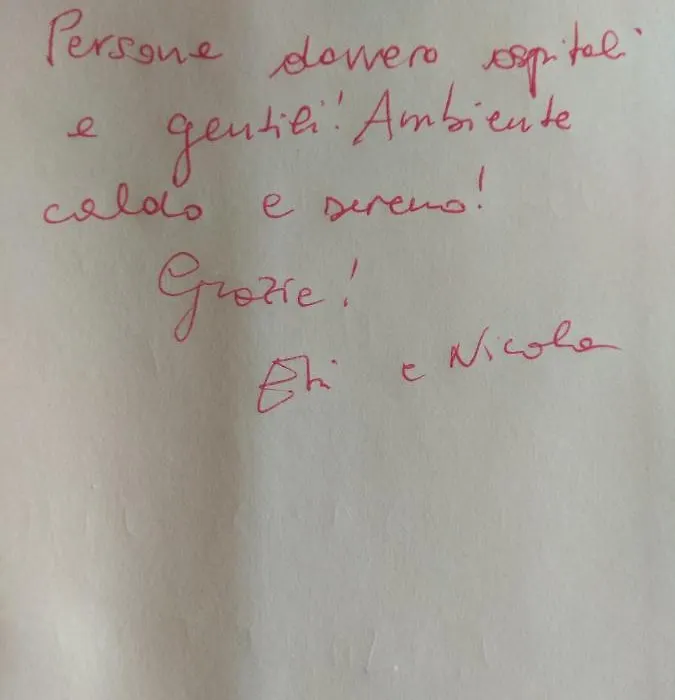 Persone davvero ospitali
e gentili! Ambiente
caldo e sereno!
Grazie!
e Nicola